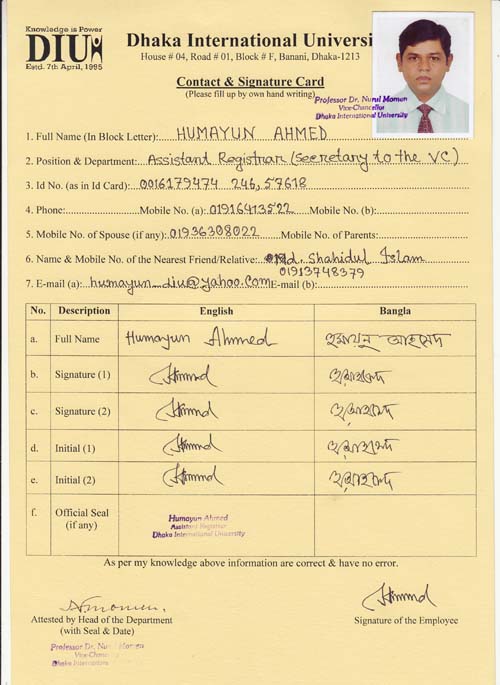 Knowledge is Power
DIU
Estd. 7th April, 1995
Dhaka International Universi
House # 04, Road # 01, Block # F, Banani, Dhaka-1213
Contact & Signature Card
(Please fill up by own hand writing)
Professor Dr. Nurul Momen
Vice-Chancellor
Dhaka International University
1. Full Name (In Block Letter): HUMAYUN AHMED
2. Position & Department: Assistant Registrar (Secretary to the VC)
3. Id No. (as in Id Card): 0016179474 246,57618
4. Phone: Mobile No. (a): 01916413522 Mobile No. (b):
5. Mobile No. of Spouse (if any): 01936308022 Mobile No. of Parents:
6. Name & Mobile No. of the Nearest Friend/Relative: Md. Shahidul Islam
01913748379
7. E-mail (a): humayun_diu@yahoo.com E-mail (b):
No. Description English Bangla
a. Full Name Humayun Ahmed হুমায়ুন আহমেদ
b. Signature (1)
c. Signature (2)
d. Initial (1)
e. Initial (2)
f. Official Seal
(if any)
Humayun Ahmed
Assistant Registrar
Dhaka International University
As per my knowledge above information are correct & have no error.
Attested by Head of the Department
(with Seal & Date)
Signature of the Employee
Professor Dr. Nurul Momen
Vice-Chancellor
Dhaka International